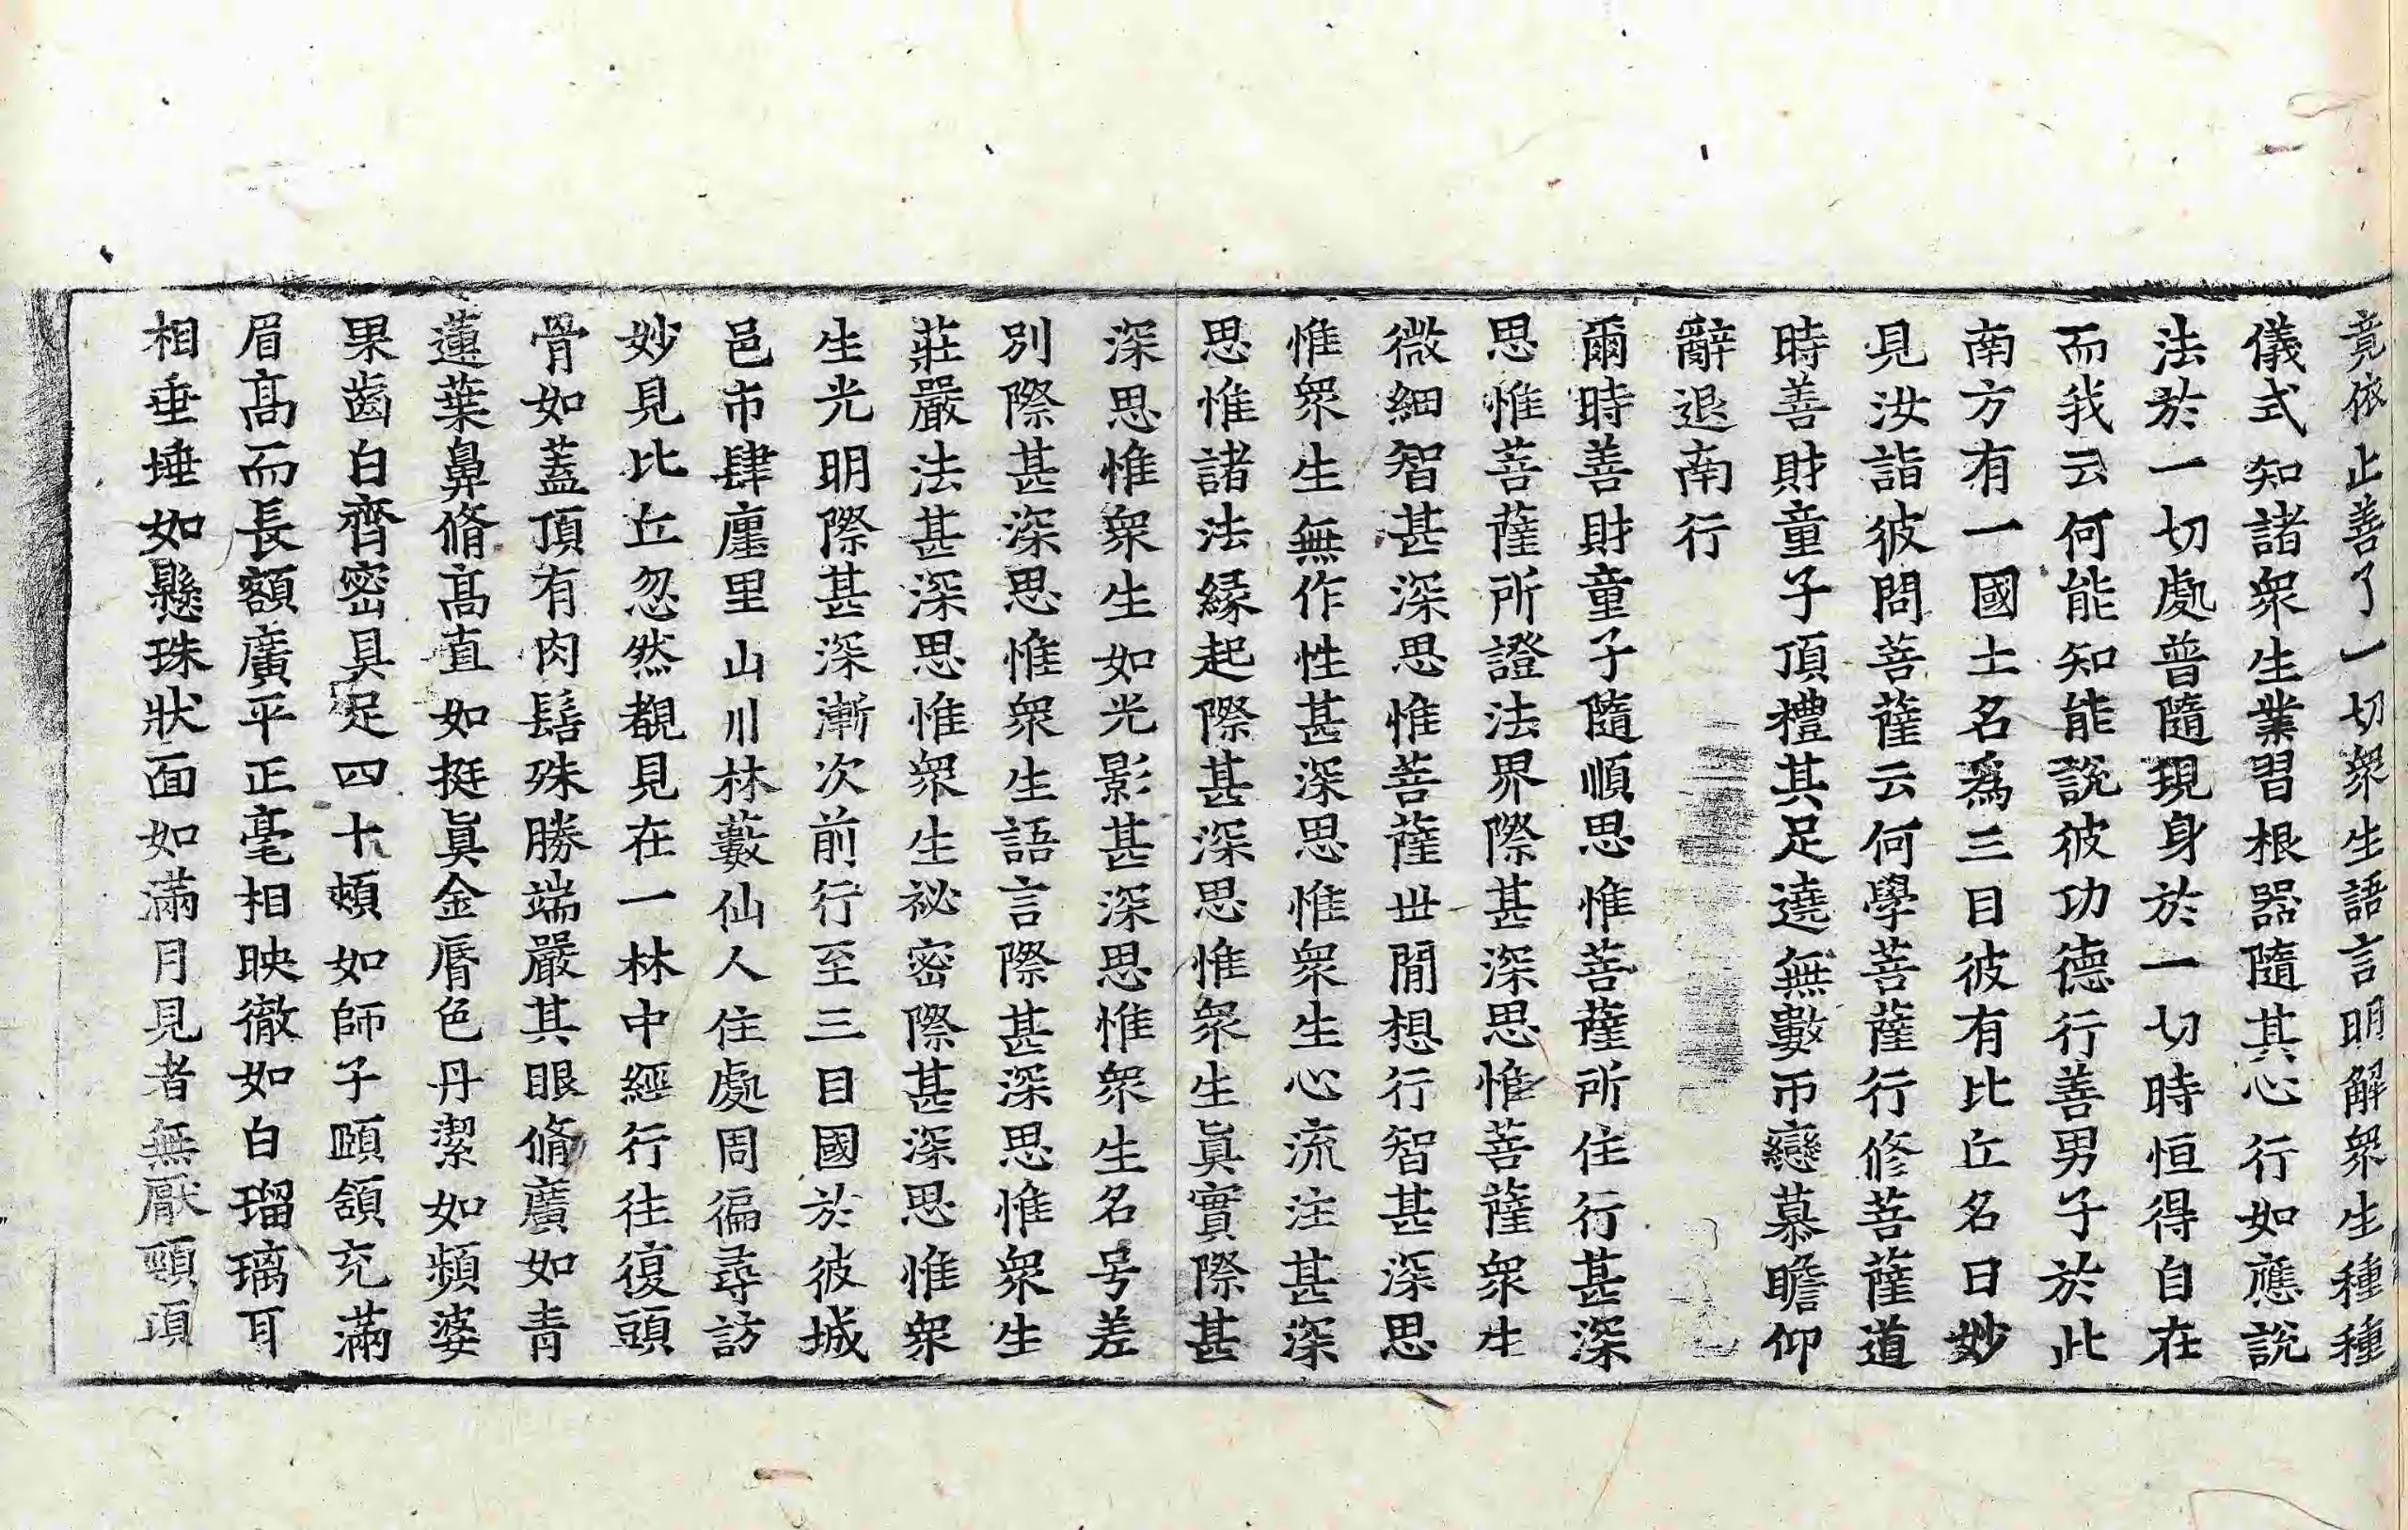 竟依止善了一切衆生語言明解衆生種種
儀式知諸衆生業習根器隨其心行如應說
法於一切處普隨現身於一切時恒得自在
而我云何能知能說彼功德行善男子於此
南方有一國土名爲三目彼有比丘名曰妙
見汝詣彼問菩薩云何學菩薩行修菩薩道
時善財童子頂禮其足遶無數帀戀慕瞻仰
辭退南行
爾時善財童子隨順思惟菩薩所住行甚深
思惟菩薩所證法界際甚深思惟菩薩衆生
微細智甚深思惟菩薩世閒想行智甚深思
惟衆生無作性甚深思惟衆生心流注甚深
思惟諸法緣起際甚深思惟衆生眞實際甚
深思惟衆生如光影甚深思惟衆生名号差
別際甚深思惟衆生語言際甚深思惟衆生
莊嚴法甚深思惟衆生祕密際甚深思惟衆
生光明際甚深漸次前行至三目國於彼城
邑市肆廛里山川林藪仙人住處周徧尋訪
妙見比丘忽然覩見在一林中經行往復頭
骨如蓋頂有肉髻殊勝端嚴其眼脩廣如青
蓮葉鼻脩高直如挺眞金脣色丹潔如頻婆
果齒白齊密具足四十頰如師子頤頷充滿
眉高而長額廣平正毫相映徹如白瑠璃耳
相垂埵如懸珠狀面如滿月見者無厭頸項